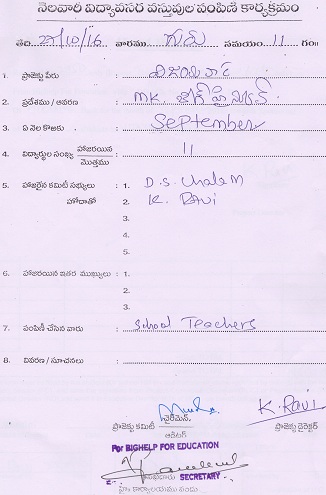 నెలవారీ విద్యావసర వస్తువుల పంపిణీ కార్యక్రమం
తేది 27/10/16 వారము గురు సమయం 11 గం॥
1. ప్రాజెక్టు పేరు : విజయవాడ
2. ప్రదేశము / ఆవరణ : MK.
3. ఏ నెల కొరకు : September
4. విద్యార్థుల సంఖ్య హాజరయిన / మొత్తము : 11
5. హాజరైన కమిటీ సభ్యులు : 1. D.S. Chalam
హోదాతో 2. K. Ravi
3.
4.
5.
6. హాజరయిన ఇతర ముఖ్యులు : 1.
2.
3.
7. పంపిణీ చేసిన వారు : School Teachers
8. వివరణ / సూచనలు :
K. Ravi
ప్రాజెక్టు కమిటీ చైర్‌మెన్. ప్రాజెక్టు డైరెక్టర్
ఆడిటర్
For BIGHELP FOR EDUCATION
SECRETARY